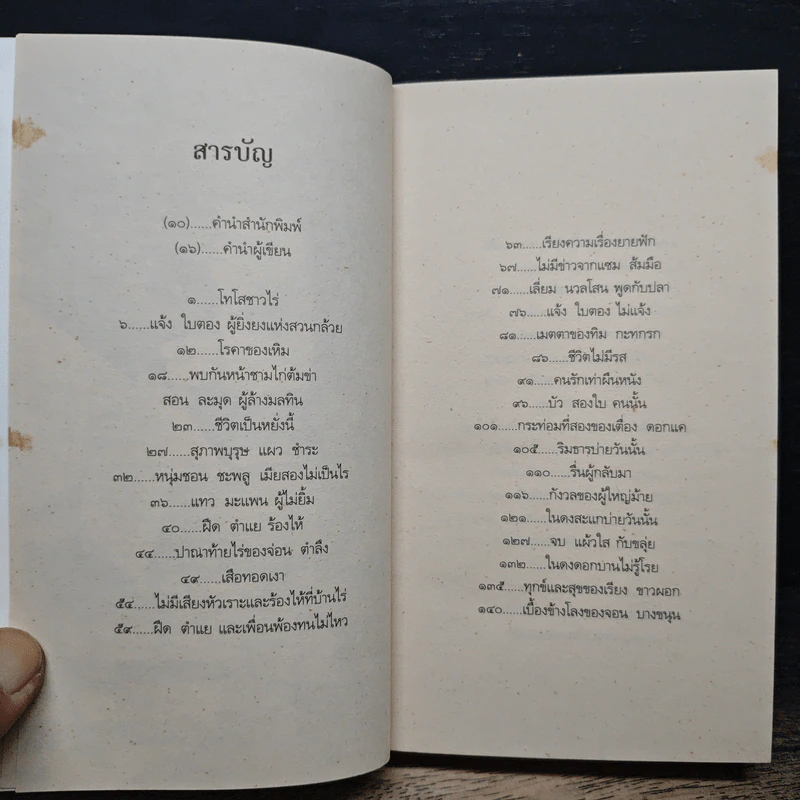 สารบัญ
(๑๐)......คำนำสำนักพิมพ์
(๑๖)......คำนำผู้เขียน
๑......โทโสชาวไร่
๖......แจ้ง ใบตอง ผู้ยิ่งยงแห่งสวนกล้วย
๑๒......โรคาของเหิม
๑๘......พบกันหน้าชามไก่ต้มข่า
สอน ละมุด ผู้ล้างมลทิน
๒๓......ชีวิตเป็นหยั่งนี้
๒๗......สุภาพบุรุษ แผว ชำระ
๓๒......หนุ่มชอน ชะพลู เมียสองไม่เป็นไร
๓๖......แทว มะแพน ผู้ไม่ยิ้ม
๔๐......ฝืด ตำแย ร้องไห้
๔๔......ปาณาท้ายไร่ของจ่อน ตำลึง
๔๙......เสือทอดเงา
๕๔......ไม่มีเสียงหัวเราะและร้องไห้ที่บ้านไร่
๕๙......ฝืด ตำแย และเพื่อนพ้องทนไม่ไหว
๖๓......เรียงความเรื่องยายฟัก
๖๗......ไม่มีข่าวจากแซม ส้มมือ
๗๑......เลี่ยม นวลโสน พูดกับปลา
๗๖......แจ้ง ใบตอง ไม่แจ้ง
๘๑......เมตตาของทิม กะทกรก
๘๖......ชีวิตไม่มีรส
๙๑......คนรักเท่าผืนหนัง
๙๖......บัว สองใบ คนนั้น
๑๐๑......กระท่อมที่สองของเตื่อง ดอกแค
๑๐๕......ริมธารบ่ายวันนั้น
๑๑๐......รื่นผู้กลับมา
๑๑๖......กังวลของผู้ใหญ่ม้าย
๑๒๑......ในดงสะแกบ่ายวันนั้น
๑๒๗......จบ แผ้วใส กับขลุ่ย
๑๓๒......ในดงดอกบานไม่รู้โรย
๑๓๕......ทุกข์และสุขของเรียง ขาวผอก
๑๔๐......เบื้องข้างโลงของจอน บางขนุน